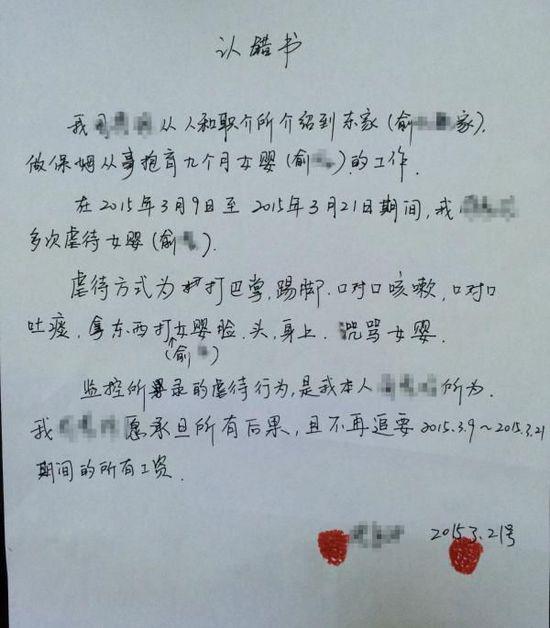 认错书
我从人和职介所介绍到东家(俞家).
做保姆从事抱育九个月女婴(俞).的工作.
在2015年3月9日至2015年3月21日期间,我
多次虐待女婴(俞).
虐待方式为打巴掌,踢脚.口对口咳嗽,口对口
吐痰,拿东西打女婴脸.头,身上.咒骂女婴.
(俞)
监控所录的虐待行为,是我本人所为.
我愿承旦所有后果,且不再追要2015.3.9~2015.3.21
期间的所有工资.
2015.3.21号